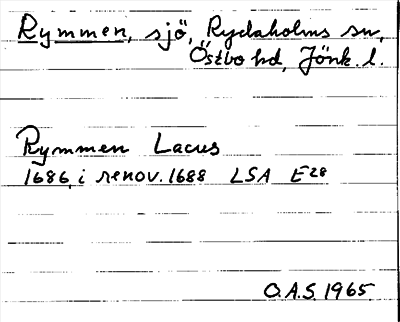 Rymmen, sjö, Rydaholms sn,
Östbo hd, Jönk. l.
Rymmen Lacus
1686, i renov. 1688 LSA E28
O.A.S. 1965